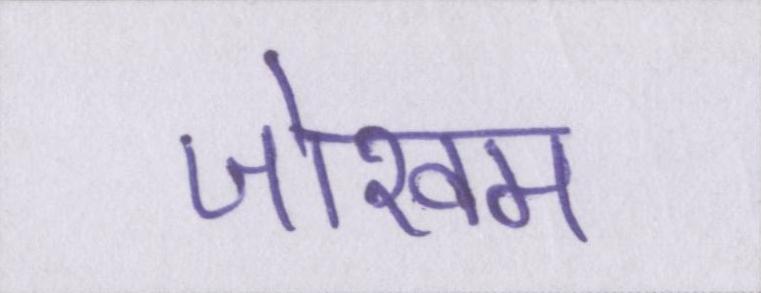 जोखम